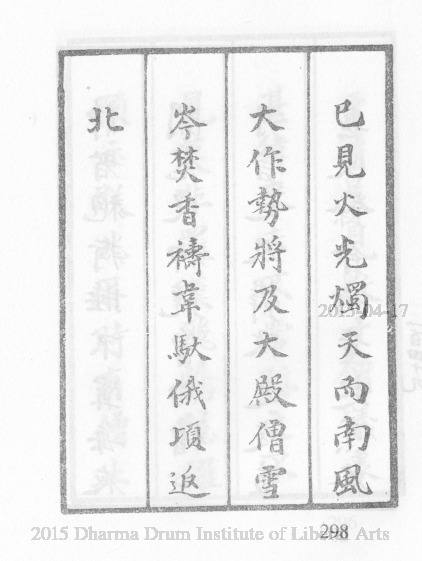 已見火光燭天而南風
大作勢將及大殿僧雪
岑焚香禱韋馱俄頃返
北
2015-04-17
298
2015 Dharma Drum Institute of Liberal Arts